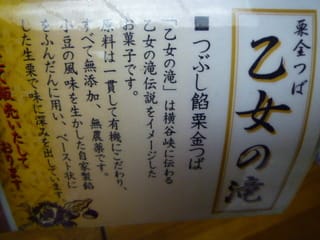 栗金つば
乙女の滝
■つぶし餡栗金つば
「乙女の滝」は横谷峡に伝わる
乙女の滝伝説をイメージした
お菓子です。
原料は一貫して有機にこだわり、
すべて無添加、無農薬です。
小豆の風味を生かした自家製餡
をふんだんに用い、ペースト状に
した生栗で味に深みを出しています
て販売いたして
おります